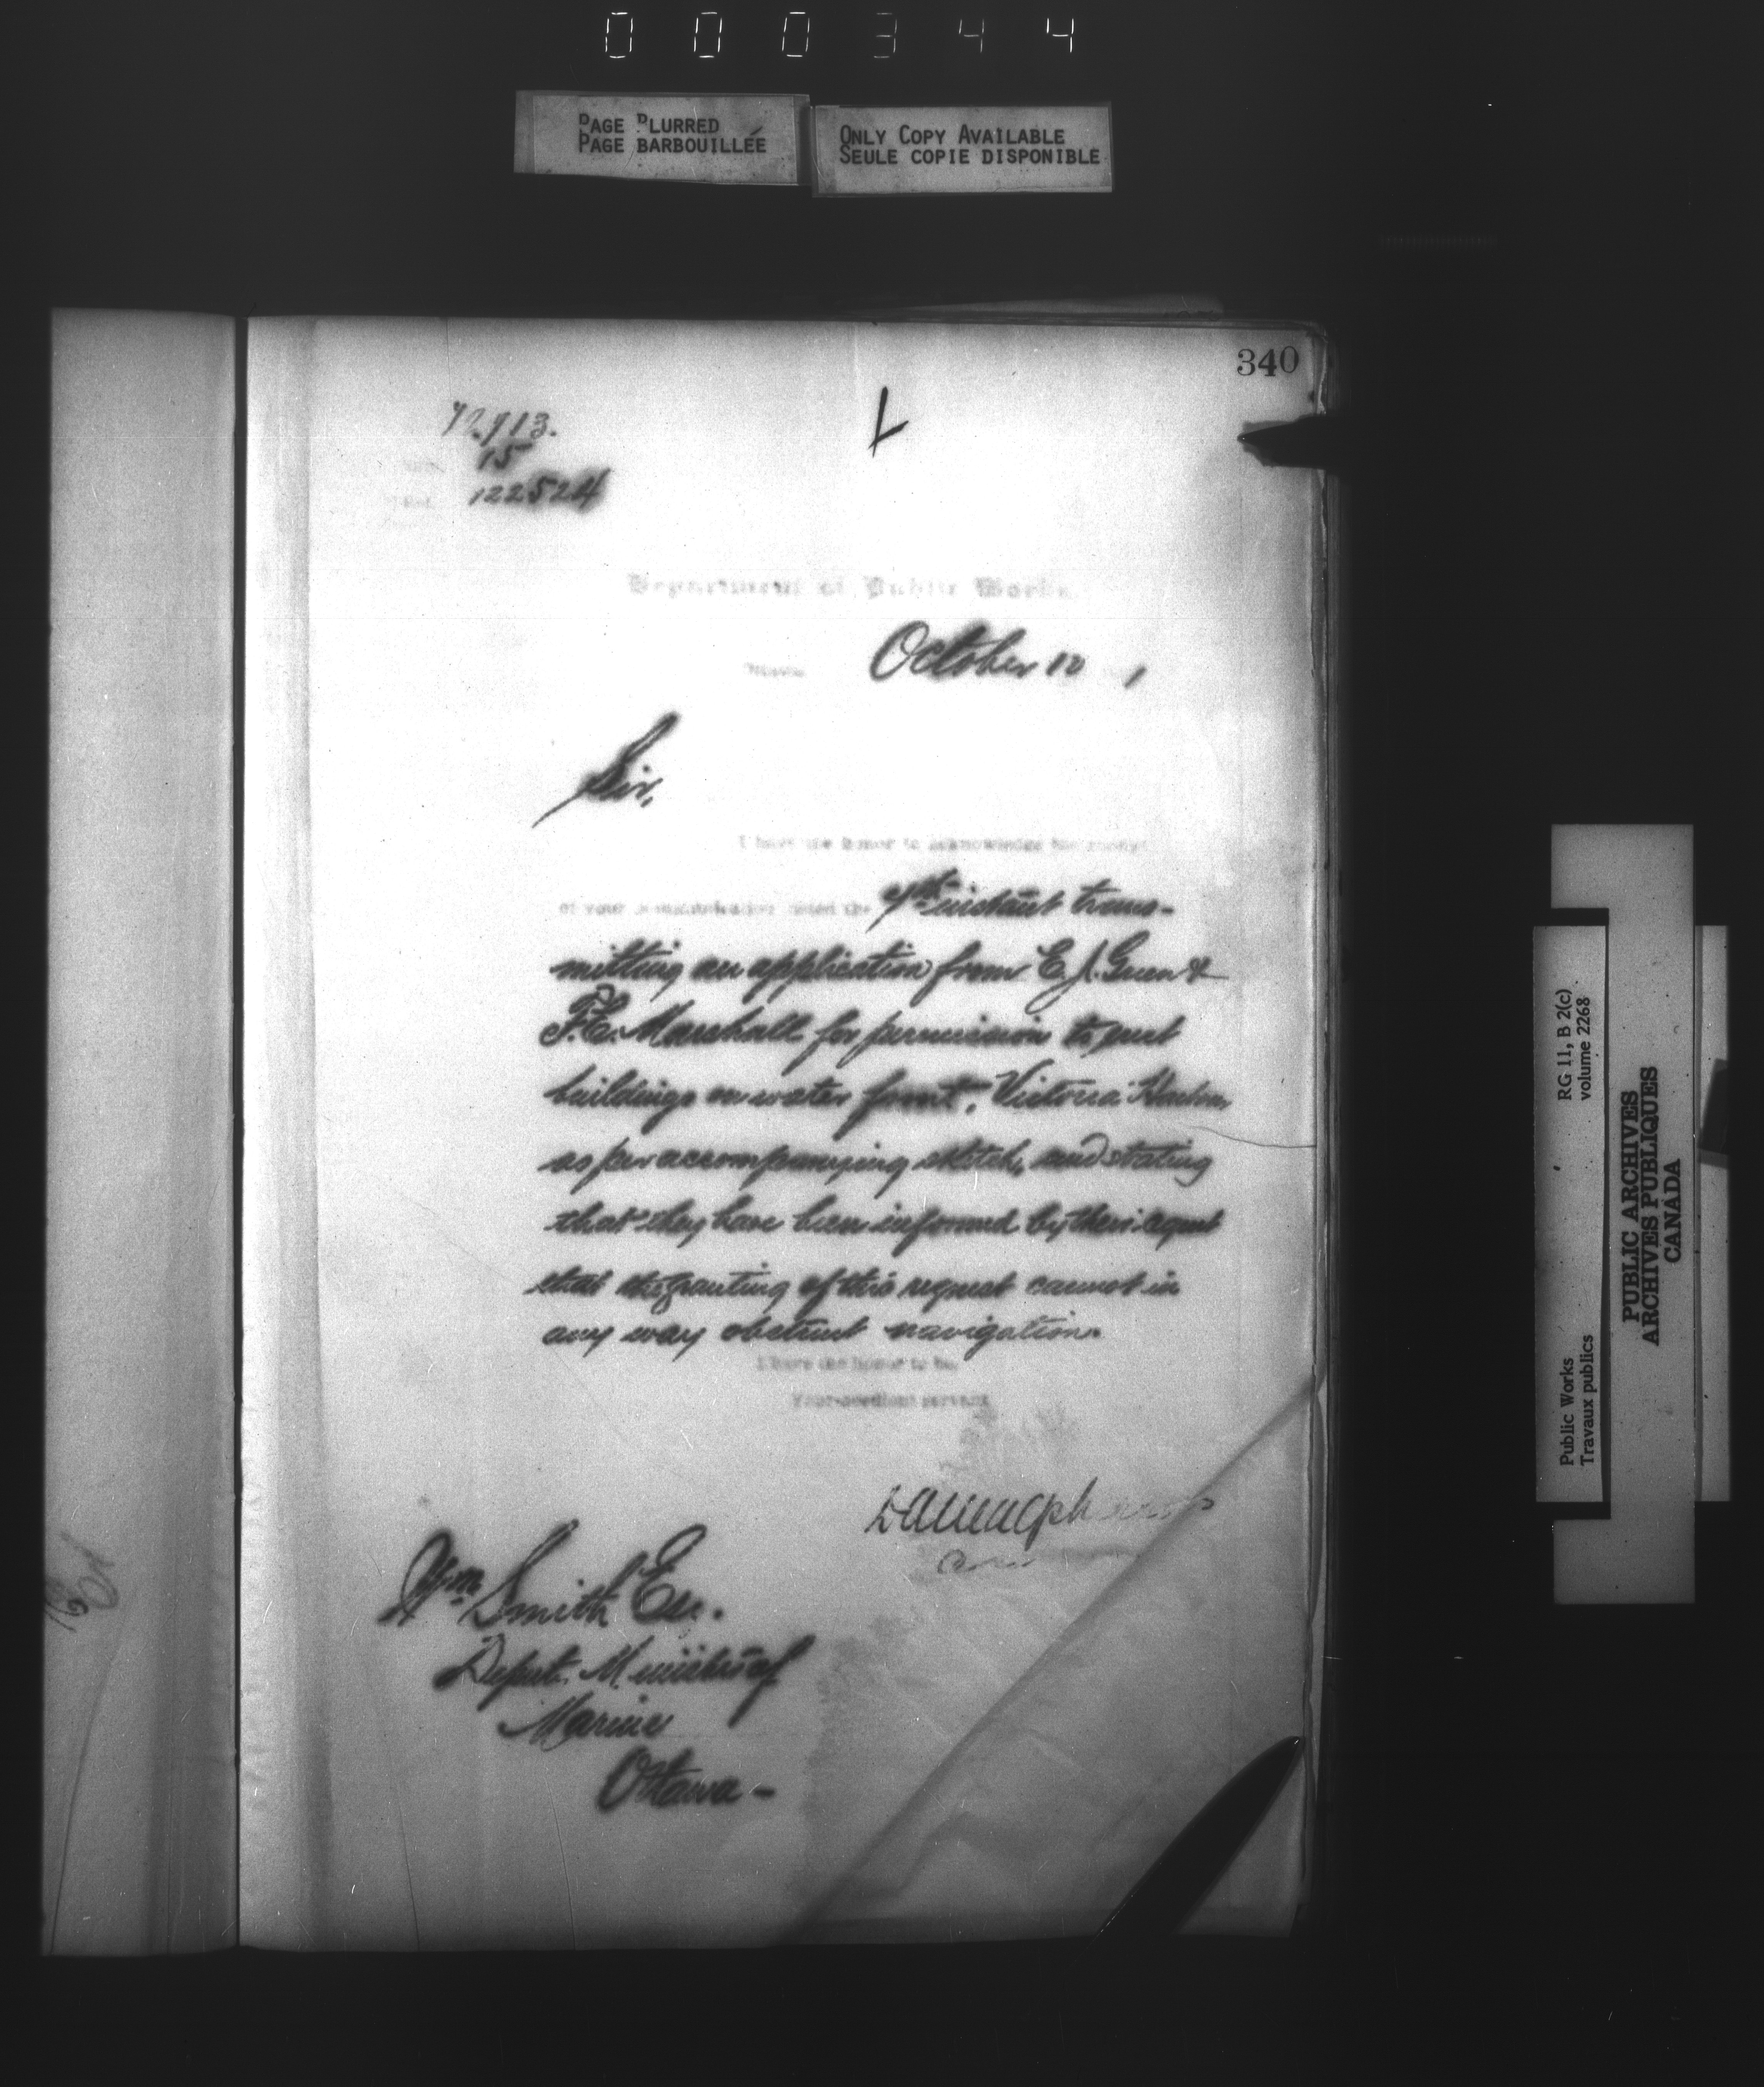 000344
PAGE BLURRED
PAGE BARBOUILLÉE
ONLY COPY AVAILABLE
SEULE COPIE DISPONIBLE
340
15
122524
Department of Public Works.
October 10
Sir,
I have the honor to acknowledge the receipt
of your communication dated the 7th instant trans-
mitting an application from E. J. Green &
F.C. Marshall for permission to put
buildings on water front, Victoria Harbor
as per accompanying sketch, and stating
that they have been informed by their agent
that the granting of this request cannot in
any way obstruct navigation.
I have the honor to be,
Your obedient servant
Wm Smith Esq.
Deput. Minister of
Marine
Ottawa -
Public Works
Travaux publics
RG 11, B 2(c)
volume 2268
PUBLIC ARCHIVES
ARCHIVES PUBLIQUES
CANADA